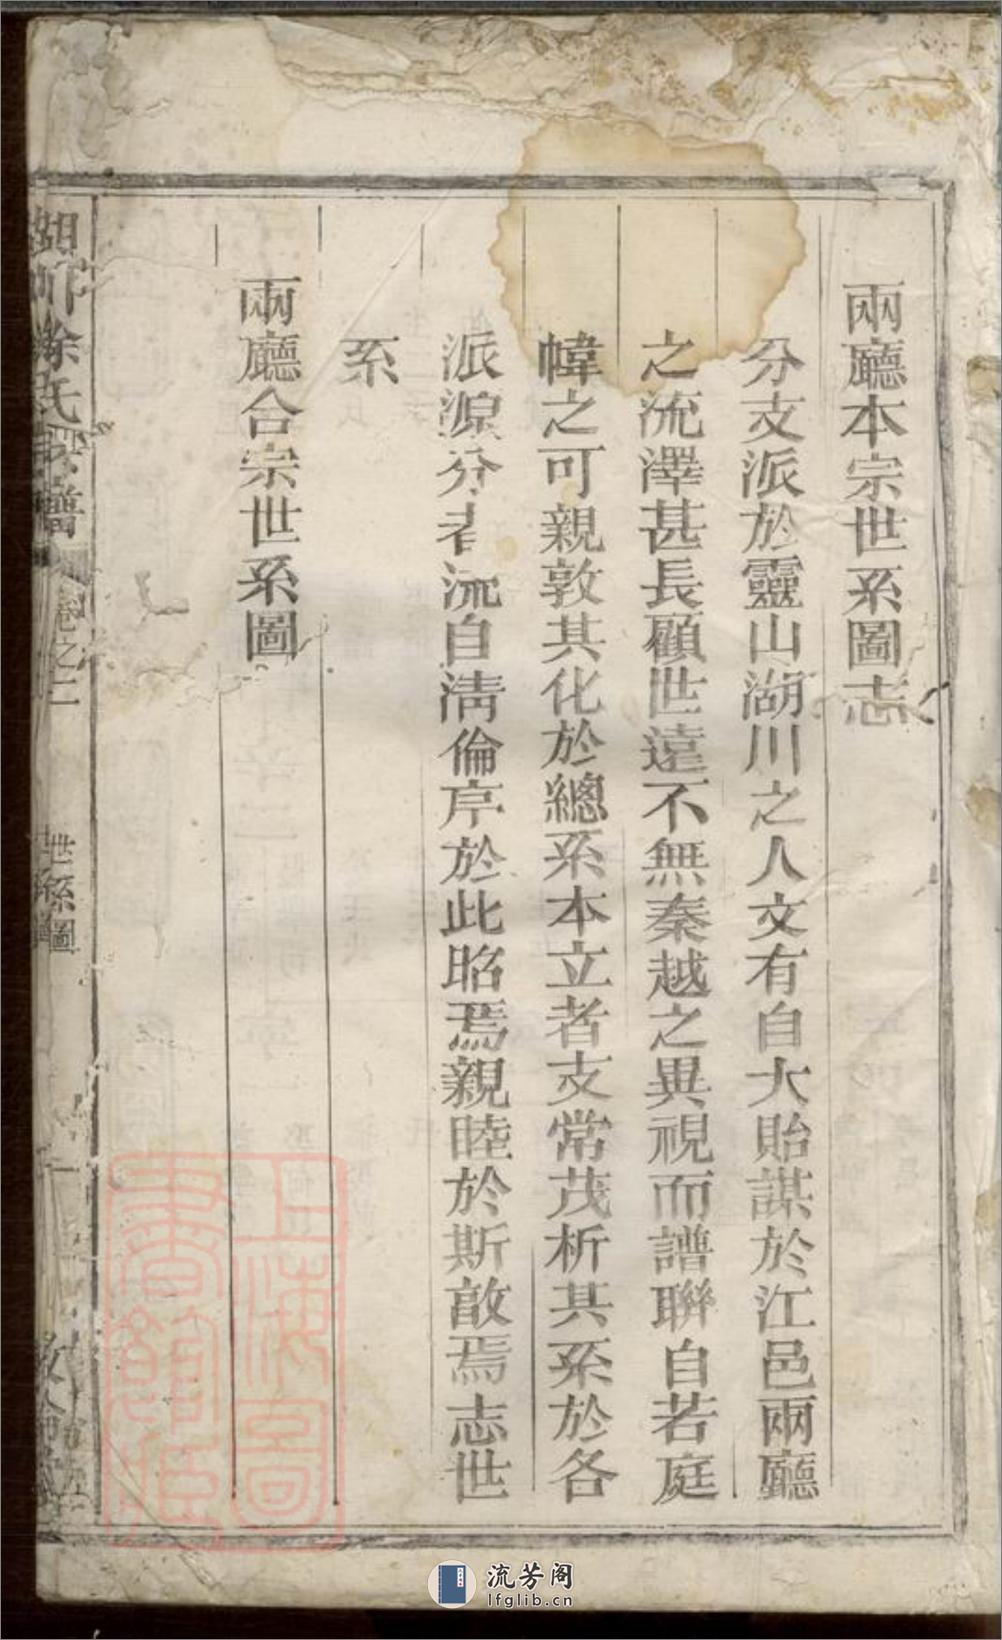 兩廳本宗世系圖志
分支派於靈山湖川之人文有自大貽謀於江邑兩廳
之流澤甚長顧世遠不無秦越之異視而譜聯自若庭
幃之可親敦其化於總系本立者支常茂析其系於各
派源分者流自清倫序於此昭焉親睦於斯敢焉志世
系
兩廳合宗世系圖
湖川涂氏宗譜
卷之二
世系圖
上海圖書館藏
流芳阁
lfglib.cn